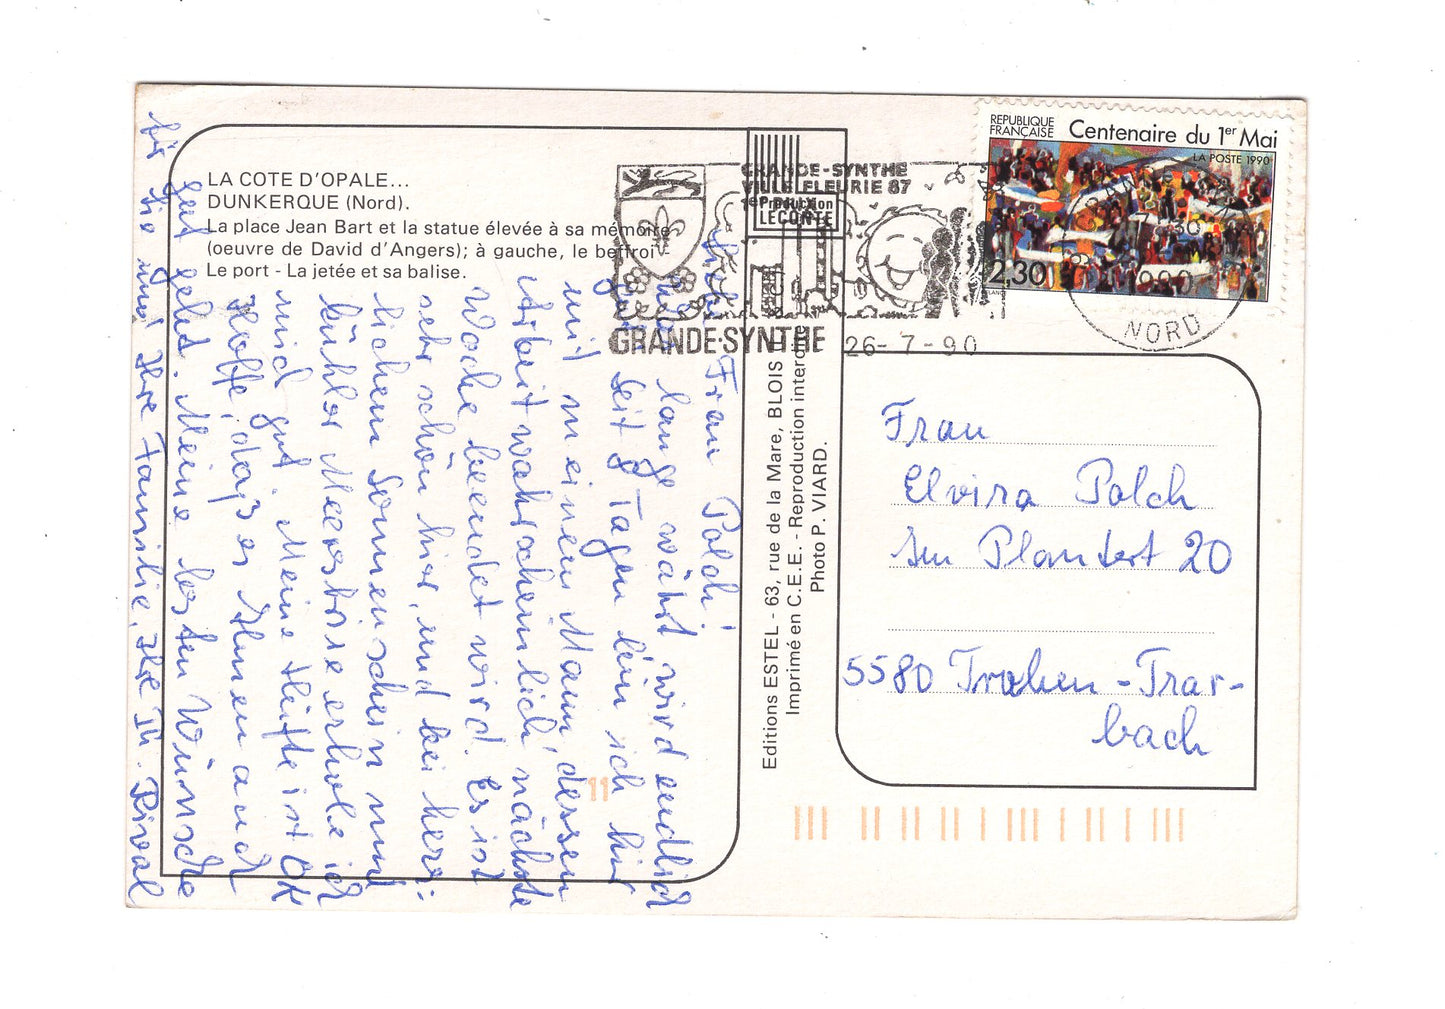 LA COTE D'OPALE...
DUNKERQUE (Nord).
La place Jean Bart et la statue élevée à sa mémoire
(oeuvre de David d'Angers); à gauche, le beffroi -
Le port - La jetée et sa balise.
GRANDE-SYNTHE
VILLE FLEURIE 87
1er
Production
LECONTE
GRANDE-SYNTHE
26-7-90
REPUBLIQUE
FRANÇAISE
Centenaire du 1er Mai
LA POSTE 1990
2,30
NORD
Liebe Frau Polch!
lange währt wird endlich
gut. Seit 8 Tagen bin ich hier
mit meinem Mann dessen
Arbeit wahrscheinlich nächste
Woche beendet wird. Es ist
sehr schön hier, und bei herr-
lichem Sonnenschein und
kühler Meerbrise erhole ich
mich gut. Meine Hüfte ist OK
Hoffe, dass es Ihnen auch
gut geht. Meine besten Wünsche
für Sie und Ihre Familie, Ihre Th. Rival
Editions ESTEL - 63, rue de la Mare, BLOIS
Imprimé en C.E.E. - Reproduction interdite
Photo P. VIARD.
Frau
Elvira Polch
Im Plantert 20
5580 Traben-Trar-
bach
11